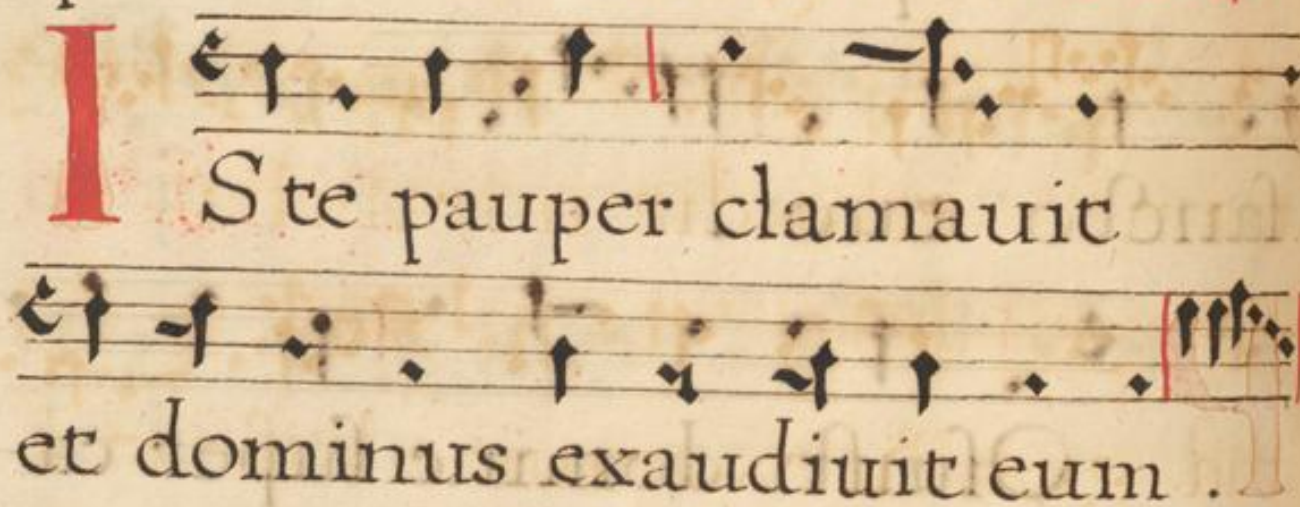 ISte pauper clamauit
et dominus exaudiuit eum .